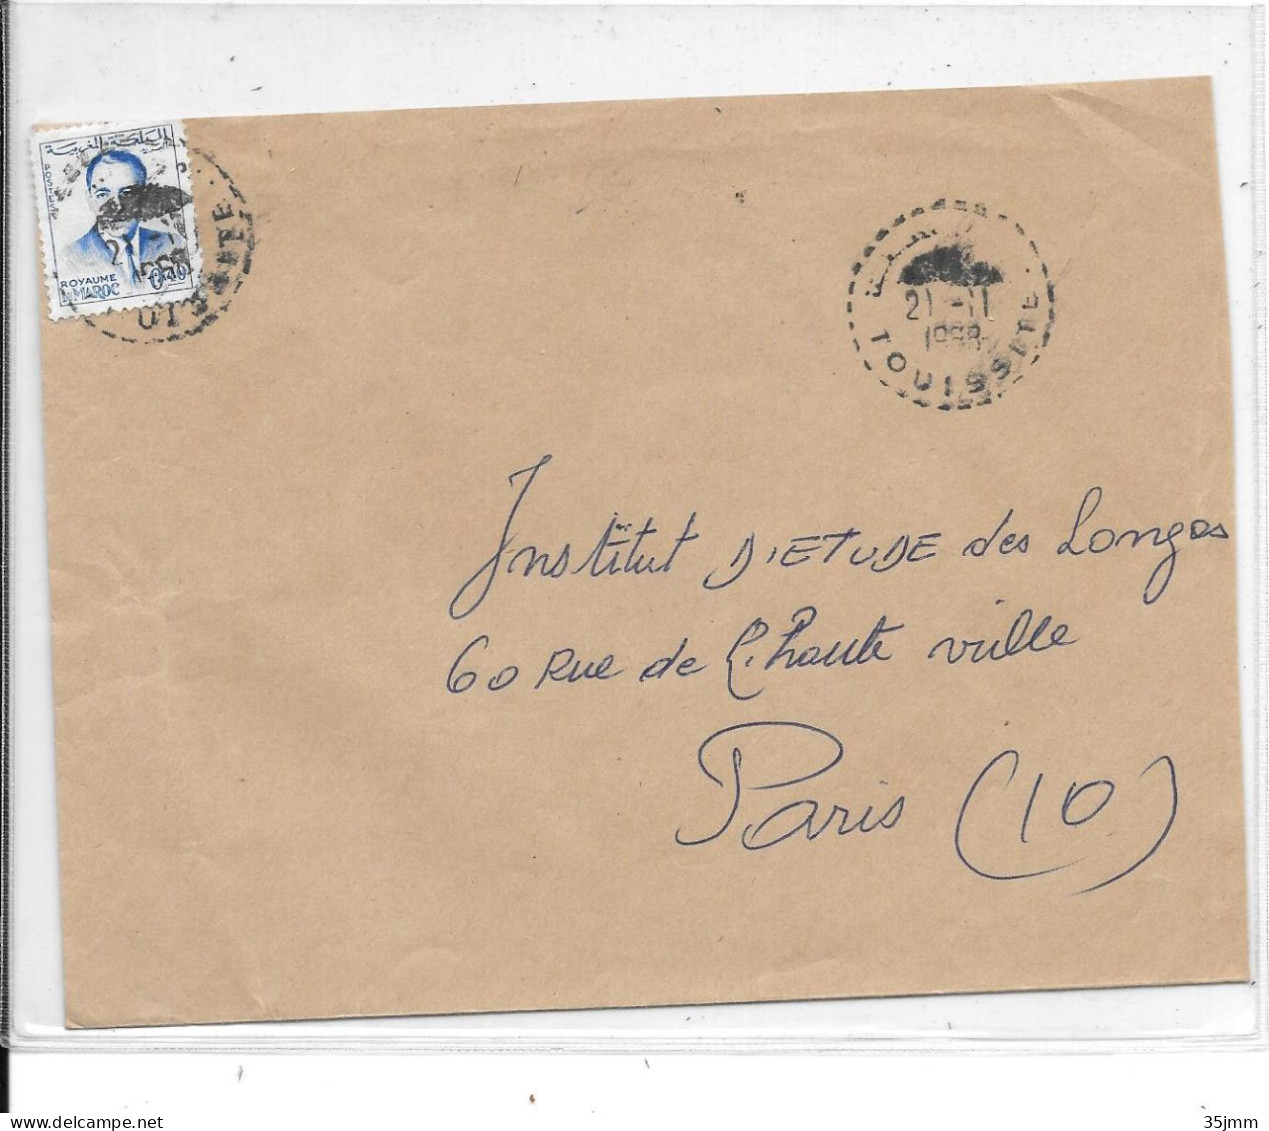 المملكة المغربية
POSTES
ROYAUME
DU MAROC
0,40
21 -11
1968
TOUISSITE
21 -11
1968
TOUISSITE
Institut D'ETUDE des Longos
60 Rue de l'haute ville
Paris (10)
35jmm